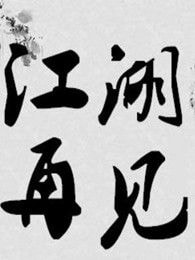 江湖
再见